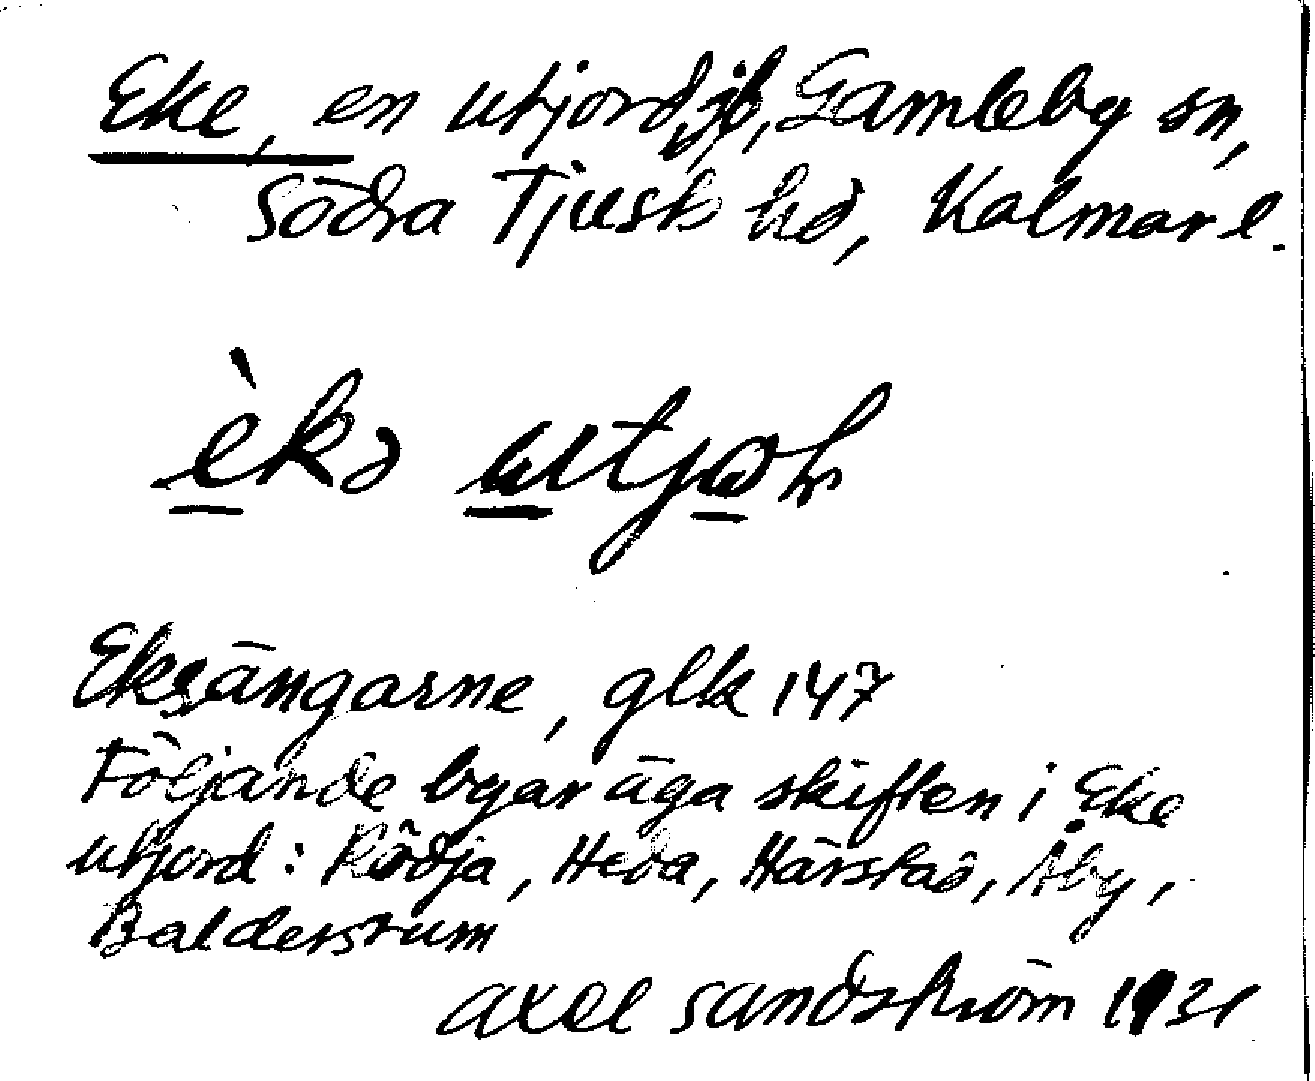 Eke, en utjord, jb, Gamleby sn,
Södra Tjust hd, Kalmar l.
èkə utjoh
Eksängarne, glk 147
Följande byar äga skiften i Eke
utjord: Rödja, Heda, Härstad, Åby,
Baldersrum
Axel Sandström 1931